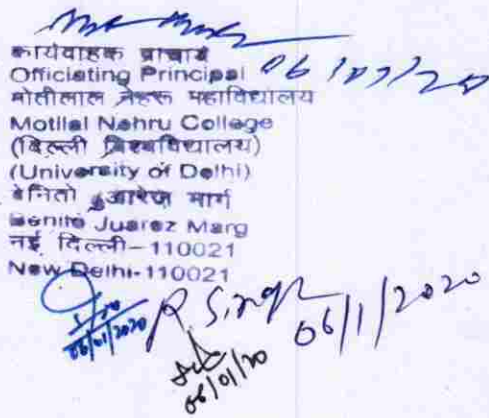 कार्यवाहक प्राचार्य
Officiating Principal
मोतीलाल नेहरू महाविद्यालय
Motilal Nehru College
(दिल्ली विश्वविद्यालय)
(University of Delhi)
बेनितो जुआरेज मार्ग
Benito Juarez Marg
नई दिल्ली-110021
New Delhi-110021
06/01/2020
R Singh 06/1/2020
06/01/20